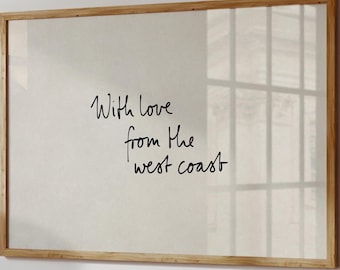 With love
from the
west coast